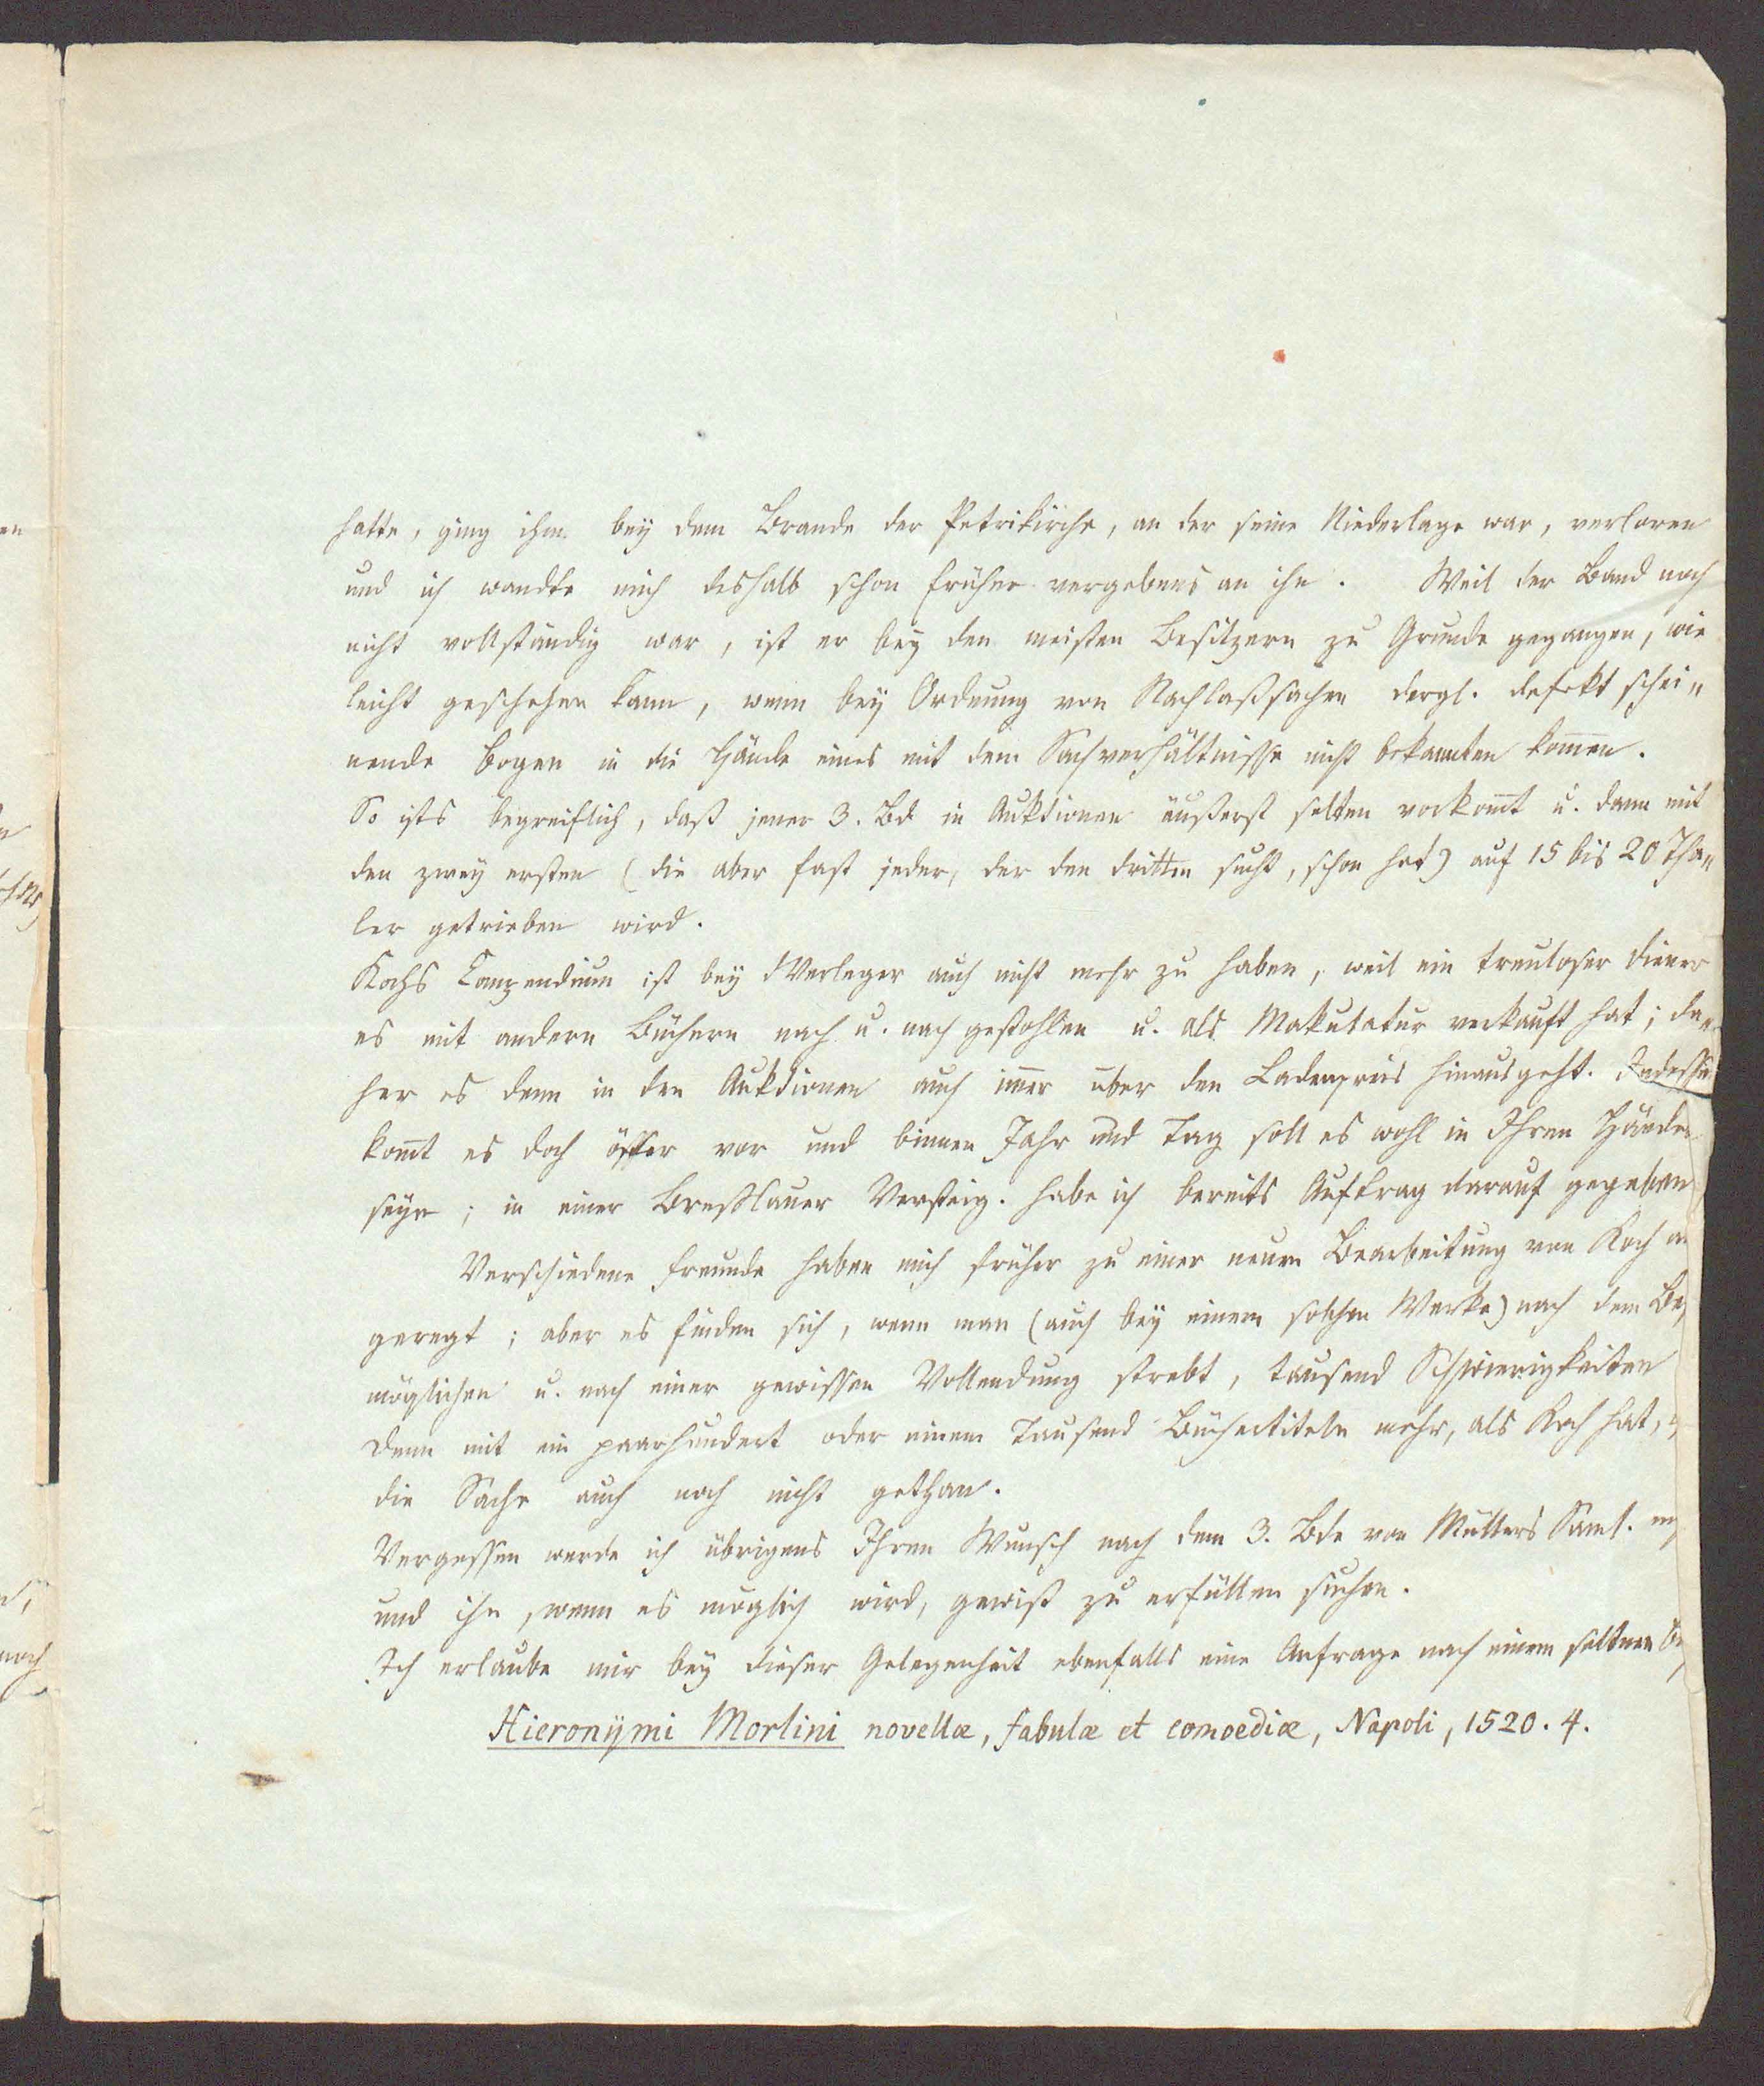 hatte, ging ihm bey dem Brande der Petrikirche, an der seine Niederlage war, verloren
und ich wandte mich deshalb schon früher vergebens an ihn. Weil der Band noch
nicht vollständig war, ist er bey den meisten Besitzern zu Grunde gegangen, wie
leicht geschehen kann, wenn bey Ordnung von Nachlaßsachen dergl. defekt schei„
nende Bogen in die Hände eines mit dem Sachverhältnisse nicht bekannten kom̅en.
So ists begreiflich, daß jener 3. Bd in Auktionen äußerst selten vorkom̅t u. dann mit
den zwey ersten (die aber fast jeder, der den dritten sucht, schon hat) auf 15 bis 20 Tha„
ler getrieben wird.
Kochs Compendium ist bey d Verleger auch nicht mehr zu haben, weil ein treuloser Diener
es mit andern Büchern nach u. nach gestohlen u. als Makulatur verkauft hat; da„
her es denn in den Auktionen auch im̅er über den Ladenpreis hinausgeht. Indessen
kom̅t es doch öfter vor und binnen Jahr und Tag soll es wohl in Ihren Händen
seyn; in einer Breßlauer Versteig. habe ich bereits Auftrag darauf gegeben
Verschiedene Freunde haben mich früher zu einer neuen Bearbeitung von Koch an
geregt; aber es finden sich, wenn man (auch bey einem solchen Werke) nach dem Be
möglichen u. nach einer gewissen Vollendung strebt, tausend Schwierigkeiten
denn mit ein paarhundert oder einem Tausend Büchertiteln mehr, als Koch hat,
die Sache auch noch nicht gethan.
Vergessen werde ich übrigens Ihren Wunsch nach dem 3. Bde von Müllers Saml.
und ihn, wenn es möglich wird, gewiß zu erfüllen suchen.
Ich erlaube mir bey dieser Gelegenheit ebenfalls eine Anfrage nach einem seltnen
Hieronÿmi Morlini novellæ, fabulæ et comoediæ, Napoli, 1520. 4.